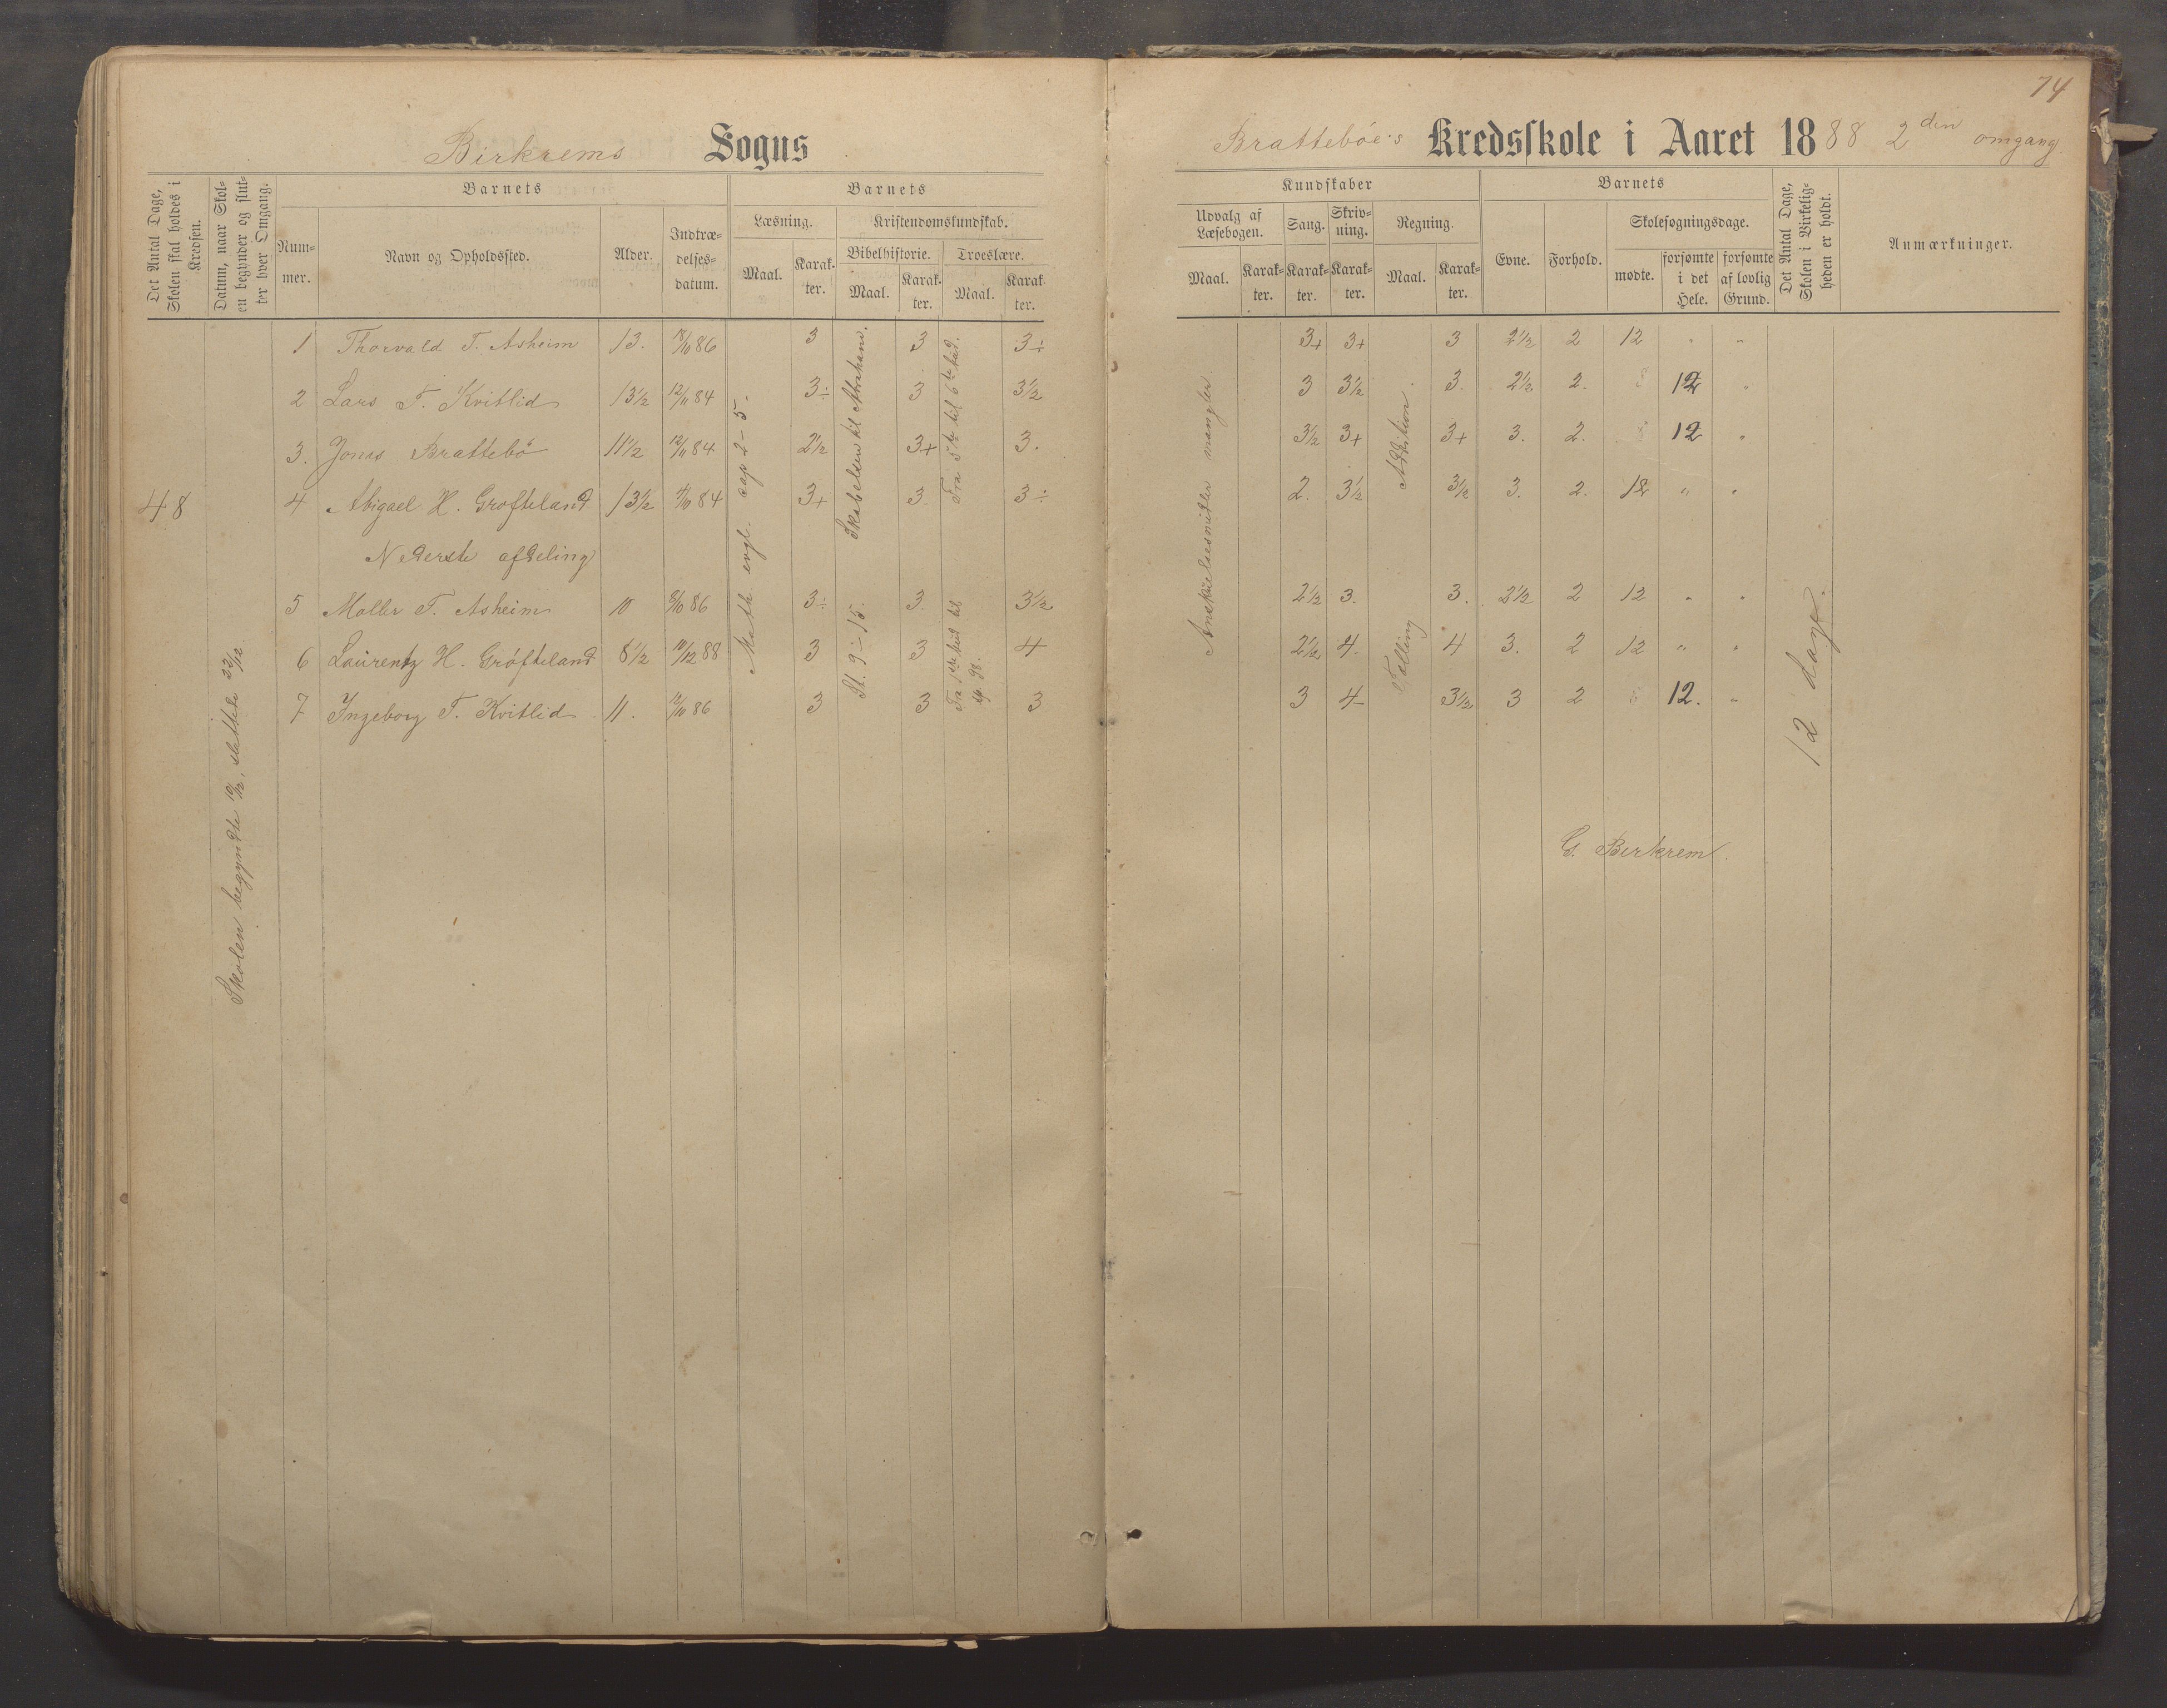 74
Birkrems Sogns
Brattebøe's Kredsskole i Aaret 1888 2den omgang.
Det Antal Dage, Skolen skal holdes i Kredsen.
Datum, naar Skolen begynder og slutter hver Omgang.
Barnets
Nummer.
Navn og Opholdssted.
Alder.
Indtrædelsesdatum.
Barnets
Læsning.
Maal.
Karakter.
Kristendomskundskab.
Bibelhistorie.
Maal.
Karakter.
Troeslære.
Maal.
Karakter.
Kundskaber
Udvalg af Læsebogen.
Maal.
Karakter.
Sang.
Karakter.
Skrivning.
Karakter.
Regning.
Maal.
Karakter.
Barnets
Evne.
Forhold.
Skolesøgningsdage.
mødte.
forsømte i det Hele.
forsømte af lovlig Grund.
Det Antal Dage, Skolen i Virkeligheden er holdt.
Anmærkninger.
48
Skolen begyndte 10/12, sluttede 22/12
1 Thorvald T. Asheim 13. 18/10 86 3 3 3÷ 3+ 3+ 3 2½ 2 12 " "
2 Lars T. Kvitlid 13½ 12/11 84 3÷ 3 3½ 3 3½ 3. 2½ 2. 12 "
3. Jonas Brattebö 11½ 12/11 84 2½ 3+ 3. 3½ 3+ 3+ 3. 2. 12 "
4 Abigael H. Grofteland 13½ 84 3+ 3. 3÷ 2. 3½ 3½ 3. 2. 12 " "
Nederste afdeling
5 Moller T. Asheim 10 86 3÷ 3. 3½ 2½ 3. 3. 2½ 2 12 " "
6 Laurentz H. Gröfteland 8½ 10/12 88 3 3 4 2½ 4 4 3. 2 12 " "
7 Ingeborg T. Kvitlid 11. 86 3 3 3 3 4 3½ 3 2 12. "
Math evgl. cap 2-5-
Skabelsen til Abraham.
St. 9-15.
Fra 5te til 6te bud.
Fra 1ste bud til
Anskuelsesmidler mangler
Addition
Tælling
12 dage.
G. Birkrem.